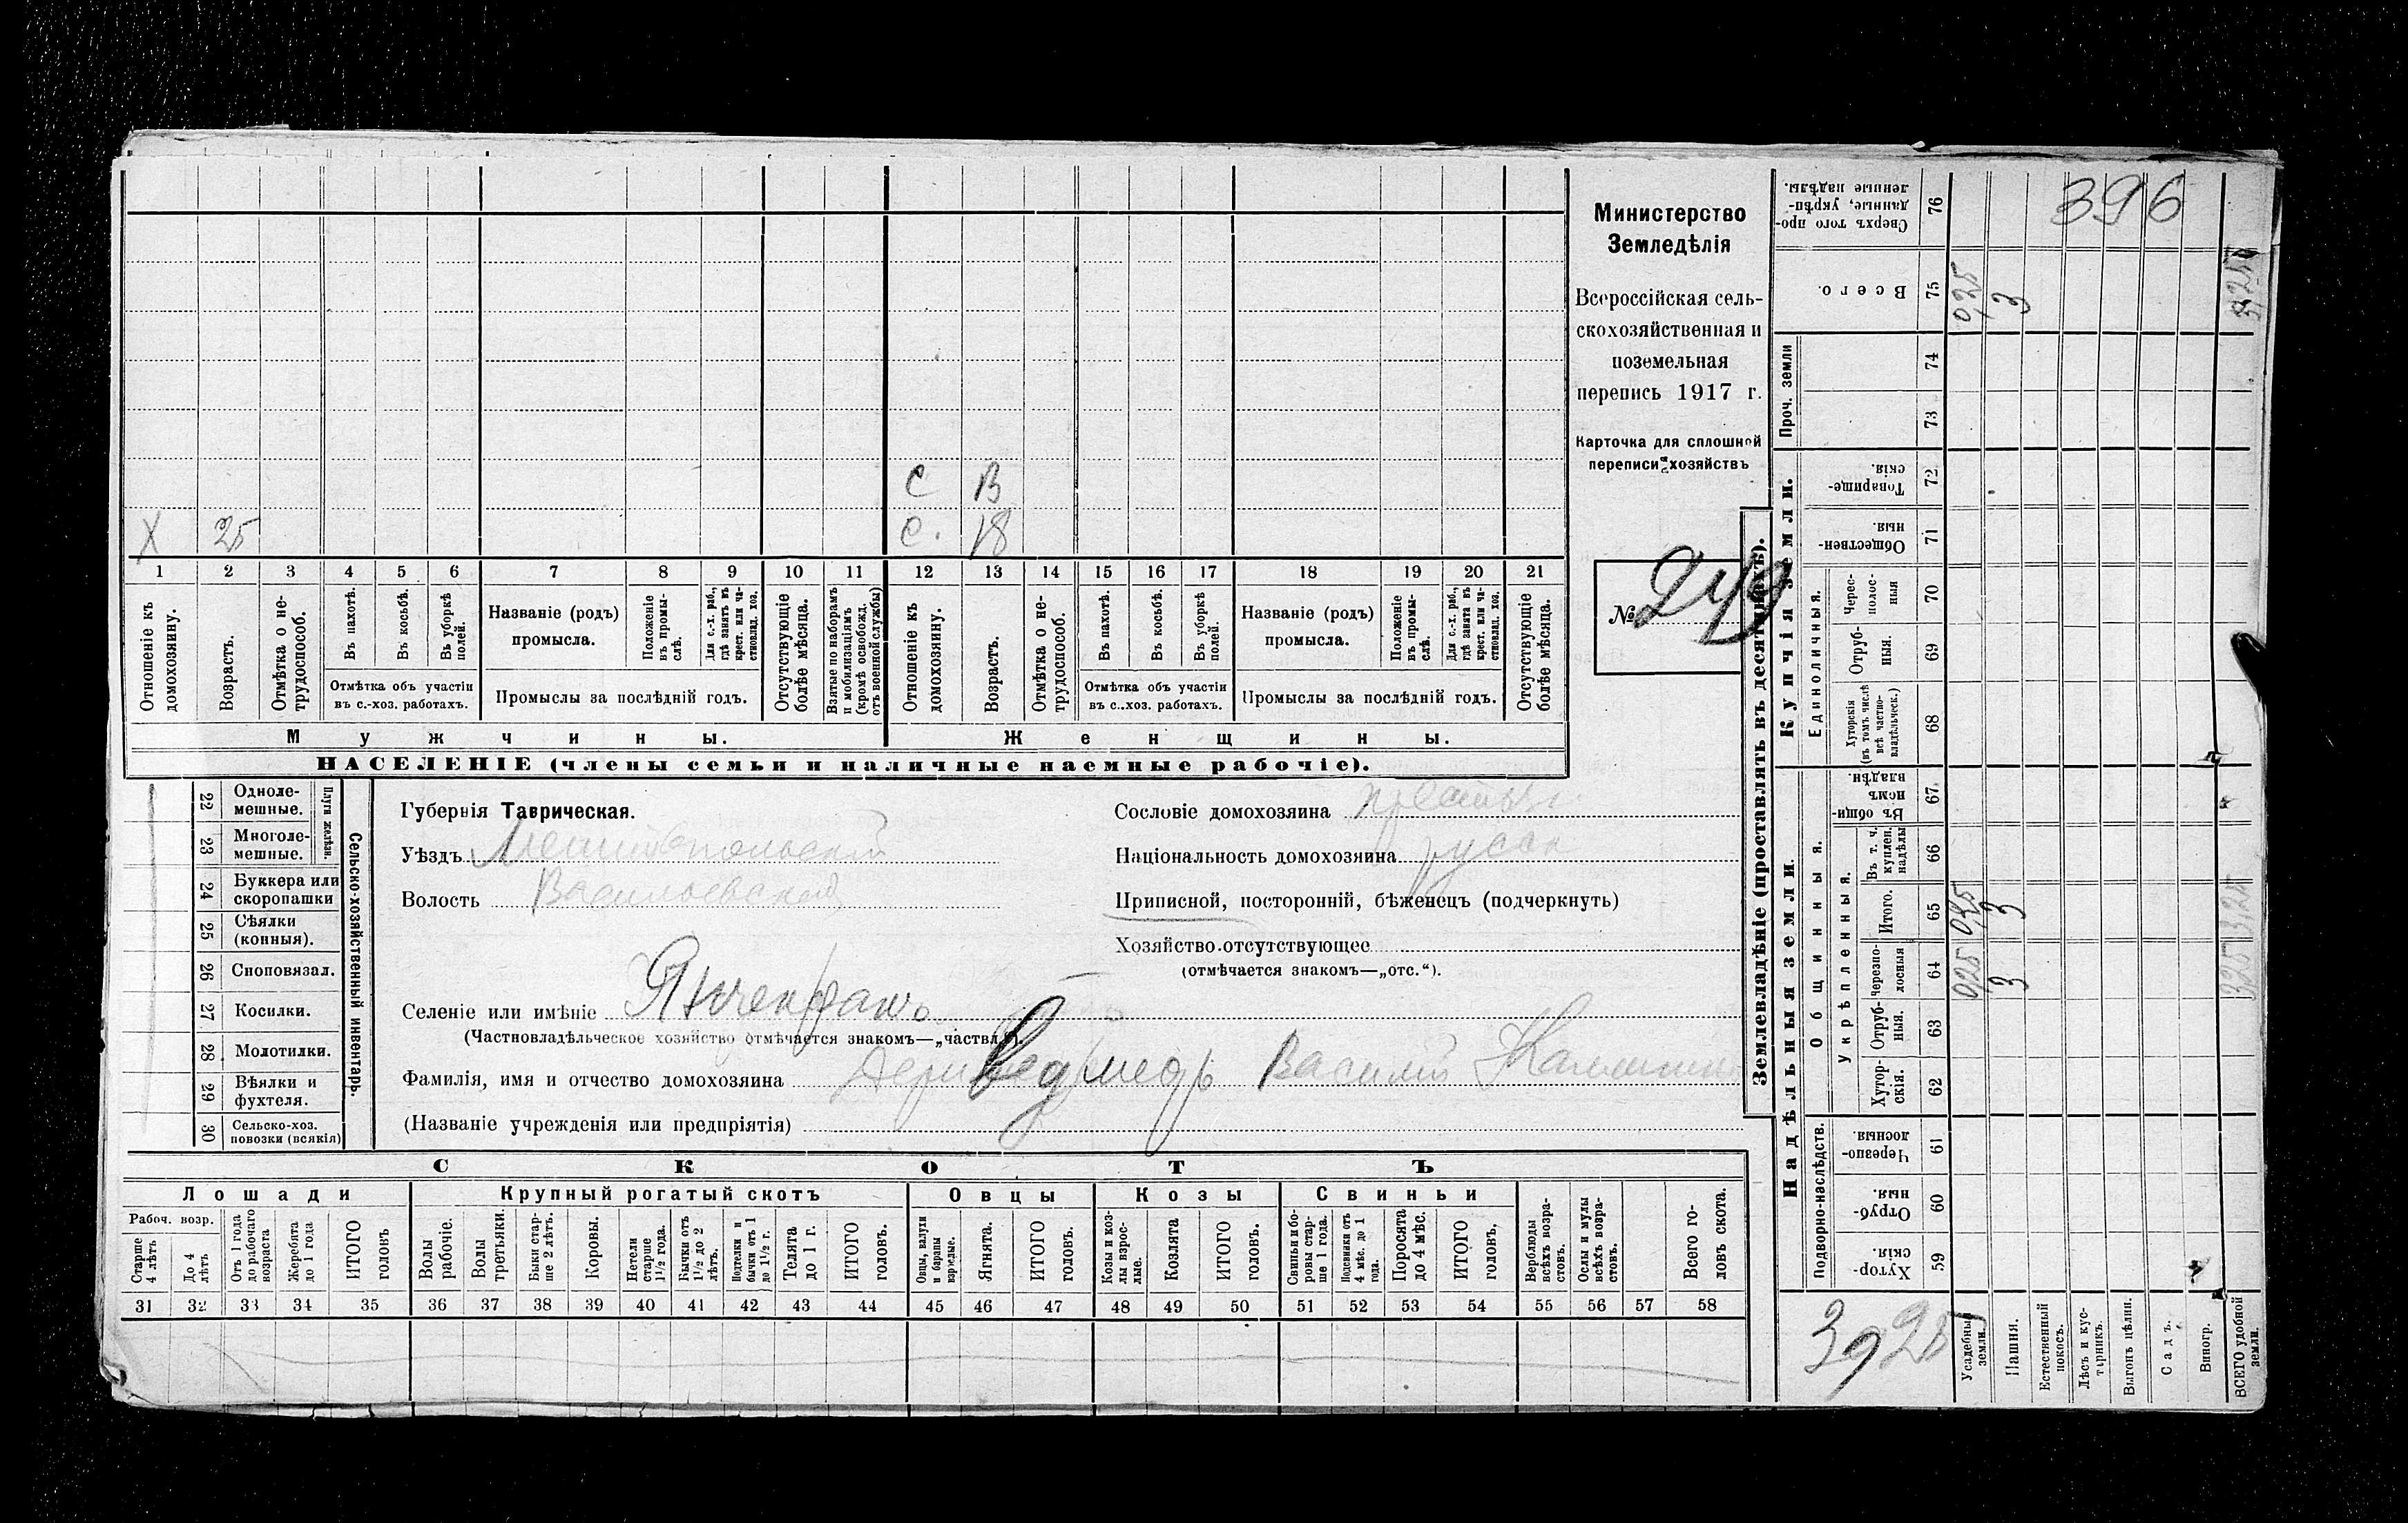 Министерство
Земледѣлія
Всероссійская сель-
скохозяйственная и
поземельная
перепись 1917 г.
Карточка для сплошной
переписи хозяйствъ
№ 249
С В
X 25 С. 18
1 2 3 4 5 6 7 8 9 10 11 12 13 14 15 16 17 18 19 20 21
Отношеніе къ домохозяину.
Возрастъ.
Отмѣтка о не-трудоспособ.
Въ пахотѣ.
Въ косьбѣ.
Въ уборкѣ полей.
Отмѣтка объ участіи въ с.-хоз. работахъ.
Названіе (родъ) промысла.
Положеніе въ промы-слѣ.
Для с.-х. раб., гдѣ занятъ въ крест. или ча-стновлад. хоз.
Промыслы за послѣдній годъ.
Отсутствующіе болѣе мѣсяца.
Взятые по наборамъ и мобилизаціямъ (кромѣ освобожд. отъ военной службы)
Отношеніе къ домохозяину.
Возрастъ.
Отмѣтка о не-трудоспособ.
Въ пахотѣ.
Въ косьбѣ.
Въ уборкѣ полей.
Отмѣтка объ участіи въ с.-хоз. работахъ.
Названіе (родъ) промысла.
Положеніе въ промы-слѣ.
Для с.-х. раб., гдѣ занята въ крест. или ча-стновлад. хоз.
Промыслы за послѣдній годъ.
Отсутствующіе болѣе мѣсяца.
Мужчины. Женщины.
НАСЕЛЕНІЕ (члены семьи и наличные наемные рабочіе).
Сельско-хозяйственный инвентарь.
Плуги желѣзн.
22 Одноле-мешные.
23 Многоле-мешные.
24 Буккера или скоропашки
25 Сѣялки (конныя).
26 Сноповязал.
27 Косилки.
28 Молотилки.
29 Вѣялки и фухтеля.
30 Сельско-хоз. повозки (всякія)
Губернія Таврическая.
Уѣздъ Мелитопольскій
Волость Васильевская
Селеніе или имѣніе Янчекракъ
(Частновладѣльческое хозяйство отмѣчается знакомъ—„частвл.“).
Фамилія, имя и отчество домохозяина Василій
(Названіе учрежденія или предпріятія)
Сословіе домохозяина крестьян
Національность домохозяина русск
Приписной, посторонній, бѣженецъ (подчеркнуть)
Хозяйство отсутствующее
(отмѣчается знакомъ—„отс.“).
СКОТЪ
Лошади Крупный рогатый скотъ Овцы Козы Свиньи
Рабоч. возр.
Старше 4 лѣтъ
До 4 лѣтъ
Отъ 1 года до рабочаго возраста
Жеребята до 1 года
ИТОГО головъ
Волы рабочіе.
Волы третьяки.
Быки стар-ше 2 лѣтъ.
Коровы.
Нетели старше 1½ года.
Бычки отъ 1½ до 2 лѣтъ.
Подтелки и бычки отъ 1 до 1½ г.
Телята до 1 г.
ИТОГО головъ.
Овцы, валухи и бараны взрослые.
Ягнята.
ИТОГО головъ.
Козы и коз-лы взрос-лые.
Козлята
ИТОГО головъ.
Свиньи и бо-ровы стар-ше 1 года.
Подсвинки отъ 4 мѣс. до 1 года.
Поросята до 4 мѣс.
ИТОГО головъ.
Верблюды всѣхъ возра-стовъ.
Ослы и мулы всѣхъ возра-стовъ.
Всего го-ловъ скота.
31 32 33 34 35 36 37 38 39 40 41 42 43 44 45 46 47 48 49 50 51 52 53 54 55 56 57 58
Землевладѣніе (проставлять въ десятинахъ).
Надѣльныя земли. Купчія земли.
Подворно-наслѣдств.
Общинныя.
Укрѣпленныя.
Единоличныя.
Проч. земли
396
76 Сверхъ того про-данные, укрѣп-ленные надѣлы.
75 Всего. 0,25 3 3,25
74
73
72 Товарище-скія.
71 Обществен-ныя
70 Черес-полос-ныя
69 Отруб-ныя.
68 Хуторскія (въ томъ числѣ всѣ частно-владѣльческ.)
67 Въ общин-номъ владѣн.
66 Въ т. ч. куплен. надѣлы
65 Итого. 0,25 3 3,25
64 Черезпо-лосныя 0,25 3 3,25
63 Отруб-ныя.
62 Хутор-скія.
61 Черезпо-лосныя.
60 Отруб-ныя.
59 Хутор-скія.
Усадебныя земли.
Пашня.
Естественный покосъ.
Лѣсъ и кус-тарникъ.
Выгонъ цѣлин.
Садъ.
Виногр.
ВСЕГО удобной земли.